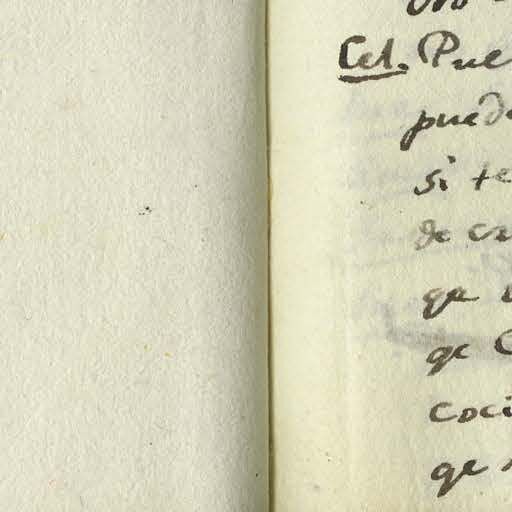 Cel. Pue
puede
si te
de ca
qe
qe C
coci
qe